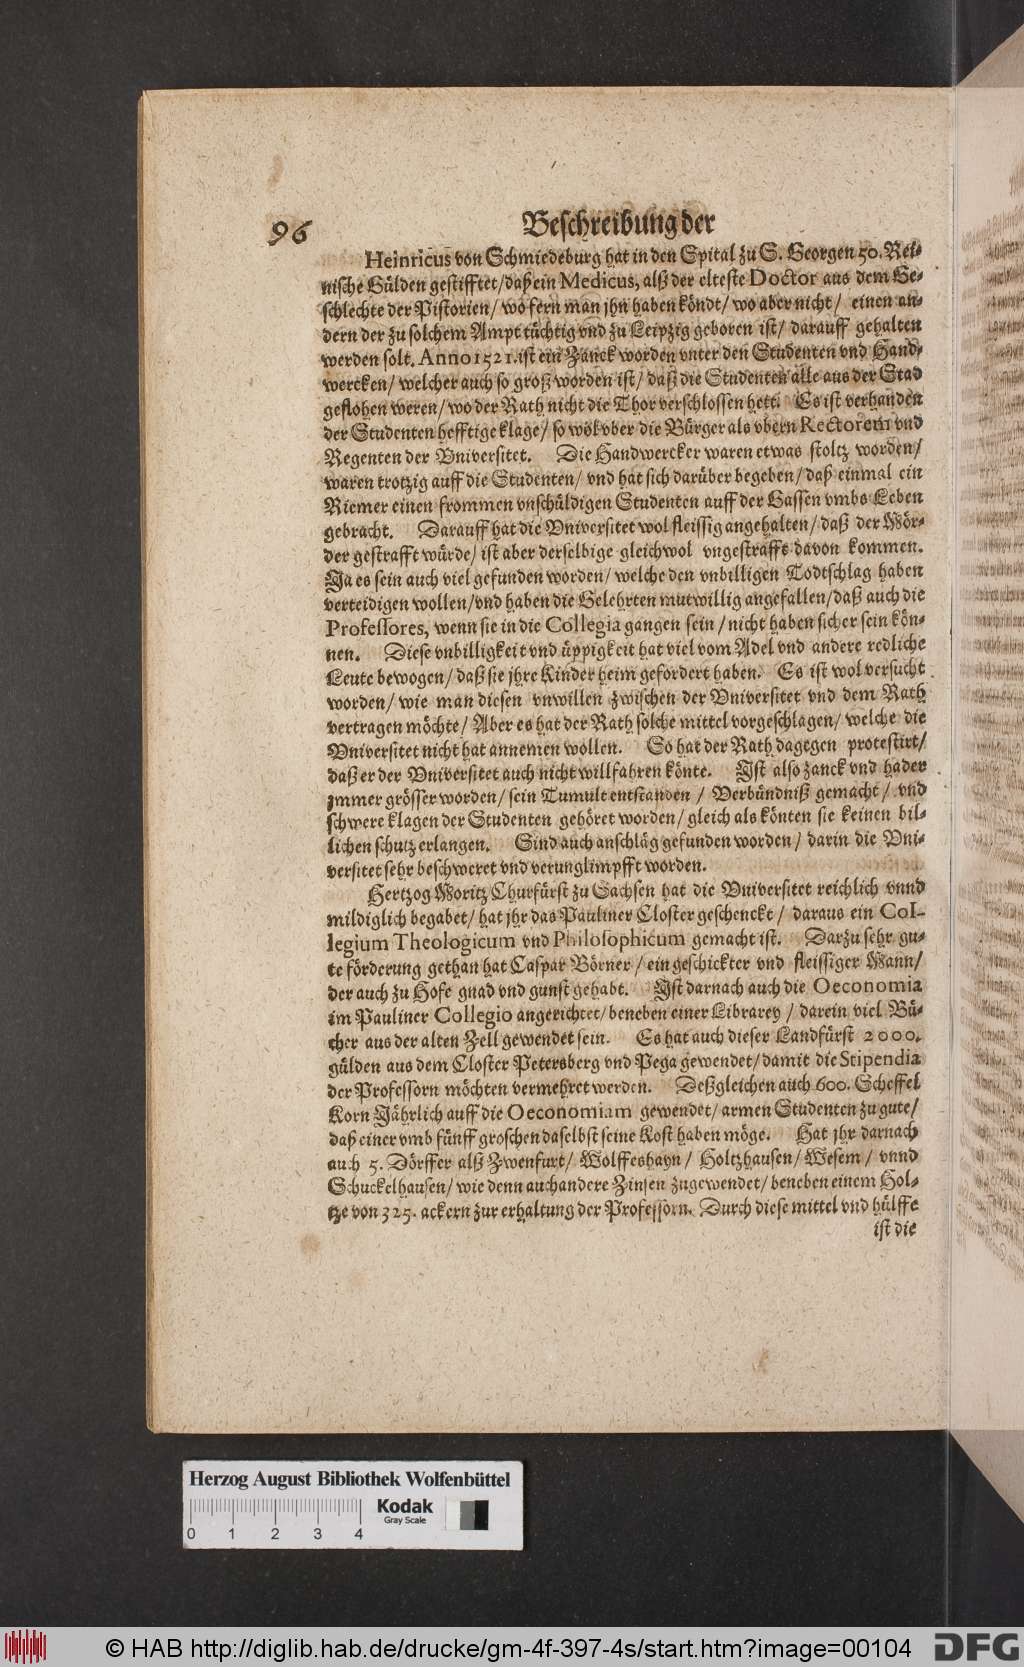 96
Beschreibung der
Heinricus von Schmiedeburg hat in den Spital zu S. Georgen 50. Rei-
nische Gülden gestifftet/ daß ein Medicus, alß der elteste Doctor aus dem Ge-
schlechte der Pistorien/ wo fern man jhn haben köndt/ wo aber nicht/ einen an-
dern der zu solchem Ampt tüchtig vnd zu Leipzig geboren ist/ darauff gehalten
werden solt. Anno 1521. ist ein Zanck worden vnter den Studenten vnd Hand-
wercken/ welcher auch so groß worden ist/ daß die Studenten alle aus der Stad
geflohen weren/ wo der Rath nicht die Thor verschlossen hett. Es ist verhanden
der Studenten hefftige klage/ so wol vber die Bürger als vbern Rectorem vnd
Regenten der Vniversitet. Die Handwercker waren etwas stoltz worden/
waren trotzig auff die Studenten/ vnd hat sich darüber begeben/ daß einmal ein
Riemer einen frommen vnschüldigen Studenten auff der Gassen vmbs Leben
gebracht. Darauff hat die Vniversitet wol fleissig angehalten/ daß der Mör-
der gestrafft würde/ ist aber derselbige gleichwol vngestrafft davon kommen.
Ja es sein auch viel gefunden worden/ welche den vnbilligen Todtschlag haben
verteidigen wollen/ vnd haben die Gelehrten mutwillig angefallen/ daß auch die
Professores, wenn sie in die Collegia gangen sein/ nicht haben sicher sein kön-
nen. Diese vnbilligkeit vnd üppigkeit hat viel vom Adel vnd andere redliche
Leute bewogen/ daß sie jhre Kinder heim gefordert haben. Es ist wol versucht
worden/ wie man diesen vnwillen zwischen der Vniversitet vnd dem Rath
vertragen möchte/ Aber es hat der Rath solche mittel vorgeschlagen/ welche die
Vniversitet nicht hat annemen wollen. So hat der Rath dagegen protestirt/
daß er der Vniversitet auch nicht willfahren könte. Ist also zanck vnd hader
immer grösser worden/ sein Tumult entstanden/ Verbündniß gemacht/ vnd
schwere klagen der Studenten gehöret worden/ gleich als könten sie keinen bil-
lichen schutz erlangen. Sind auch anschläg gefunden worden/ darin die Vni-
versitet sehr beschweret vnd verunglimpfft worden.
Hertzog Moritz Churfürst zu Sachsen hat die Vniversitet reichlich vnnd
mildiglich begabet/ hat jhr das Pauliner Closter geschenckt/ daraus ein Col-
legium Theologicum vnd Philosophicum gemacht ist. Darzu sehr gu-
te förderung gethan hat Caspar Börner/ ein geschickter vnd fleissiger Mann/
der auch zu Hofe gnad vnd gunst gehabt. Ist darnach auch die Oeconomia
im Pauliner Collegio angerichtet/ beneben einer Librarey/ darein viel Bü-
cher aus der alten Zell gewendet sein. Es hat auch dieser Landfürst 2000.
gülden aus dem Closter Petersberg vnd Pega gewendet/ damit die Stipendia
der Professorn möchten vermehret werden. Deßgleichen auch 600. Scheffel
Korn Jährlich auff die Oeconomiam gewendet/ armen Studenten zu gute/
daß einer vmb fünff groschen daselbst seine Kost haben möge. Hat jhr darnach
auch 5. Dörffer alß Zwenfurt/ Wolffeshayn/ Holtzhausen/ Wesem/ vnnd
Schuckelhausen/ wie denn auch andere Zinsen zugewendet/ beneben einem Hol-
tze von 325. ackern zur erhaltung der Professorn. Durch diese mittel vnd hülffe
ist die
Herzog August Bibliothek Wolfenbüttel
0 1 2 3 4
Kodak
Gray Scale
© HAB http://diglib.hab.de/drucke/gm-4f-397-4s/start.htm?image=00104
DFG